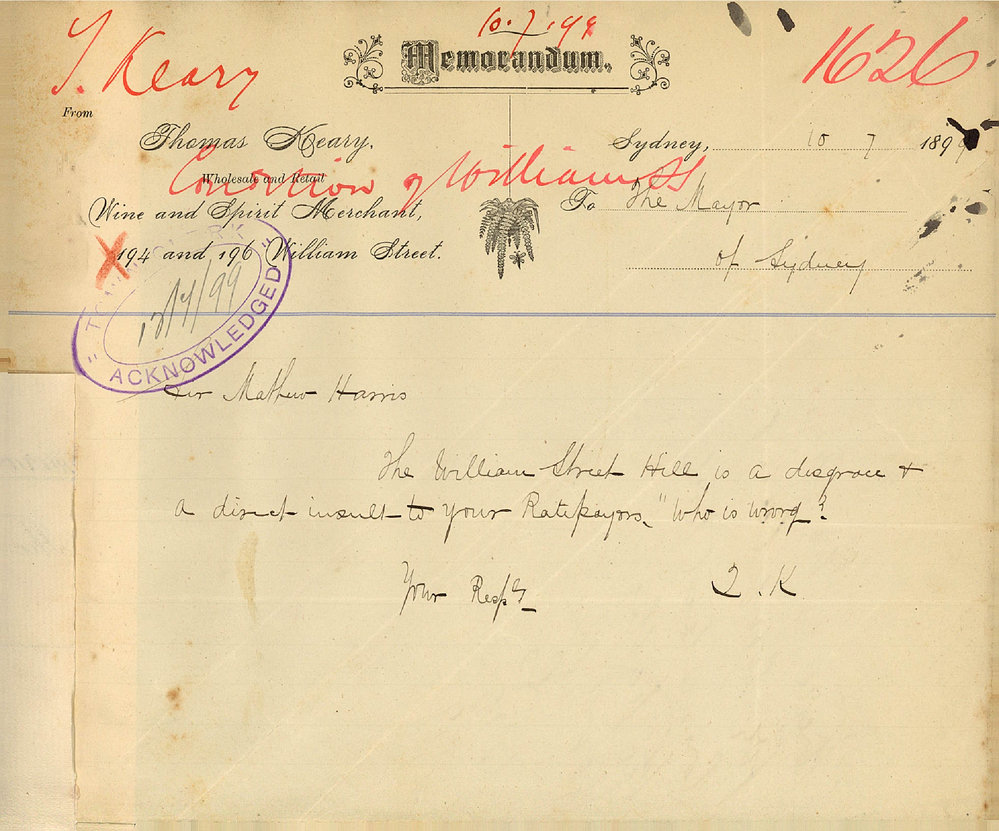 10.7.99
T. Keary
Memorandum.
1626
From
Thomas Keary,
Sydney, 10 7 1899
Wholesale and Retail
Condition of William St
Wine and Spirit Merchant,
To The Mayor
194 and 196 William Street.
of Sydney
X
12/7/99
ACKNOWLEDGED
Sir Mathew Harris
The William Street Hill is a disgrace +
a direct insult to your Ratepayors, "Who is wrong?
Your Respy
T. K